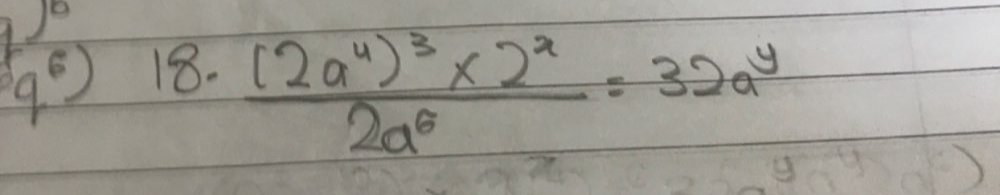 q⁶) 18. (2a⁴)³ × 2ˣ / 2a⁶ = 32aʸ